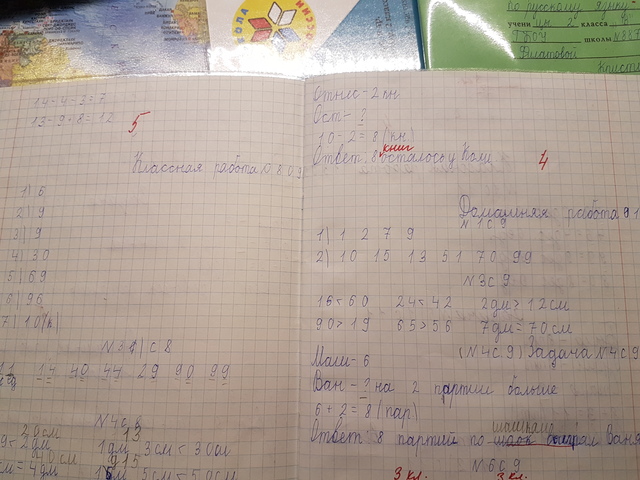 по русскому языку
учени цы 2 класса
школы №
Филатовой
14-4-3=7
13-9+8=12
5
Классная работа
1) 6
2) 9
3) 9
4) 30
5) 69
6) 96
7) 10
с 8
14 40 44 29 90 99
20см
1дм 3см < 30см
5см < 50см
2 кн
Ост - ?
10-2=8 (кн)
книг
Ответ: 8 осталось у Коли.
4
Домашняя работа
№1 с 9
1) 1 2 7 9
2) 10 15 13 51 70 99
№3 с 9
16<60 24<42 2дм > 12см
90>19 65>56 7дм = 70см
(№4 с 9) Задача №4 с 9
Маш- 6
Ван - ? на 2 партии больше
6+2=8 (пар)
Ответ 8 партий по сыграл Ваня
№6 с 9
3 кл. 3 кл.